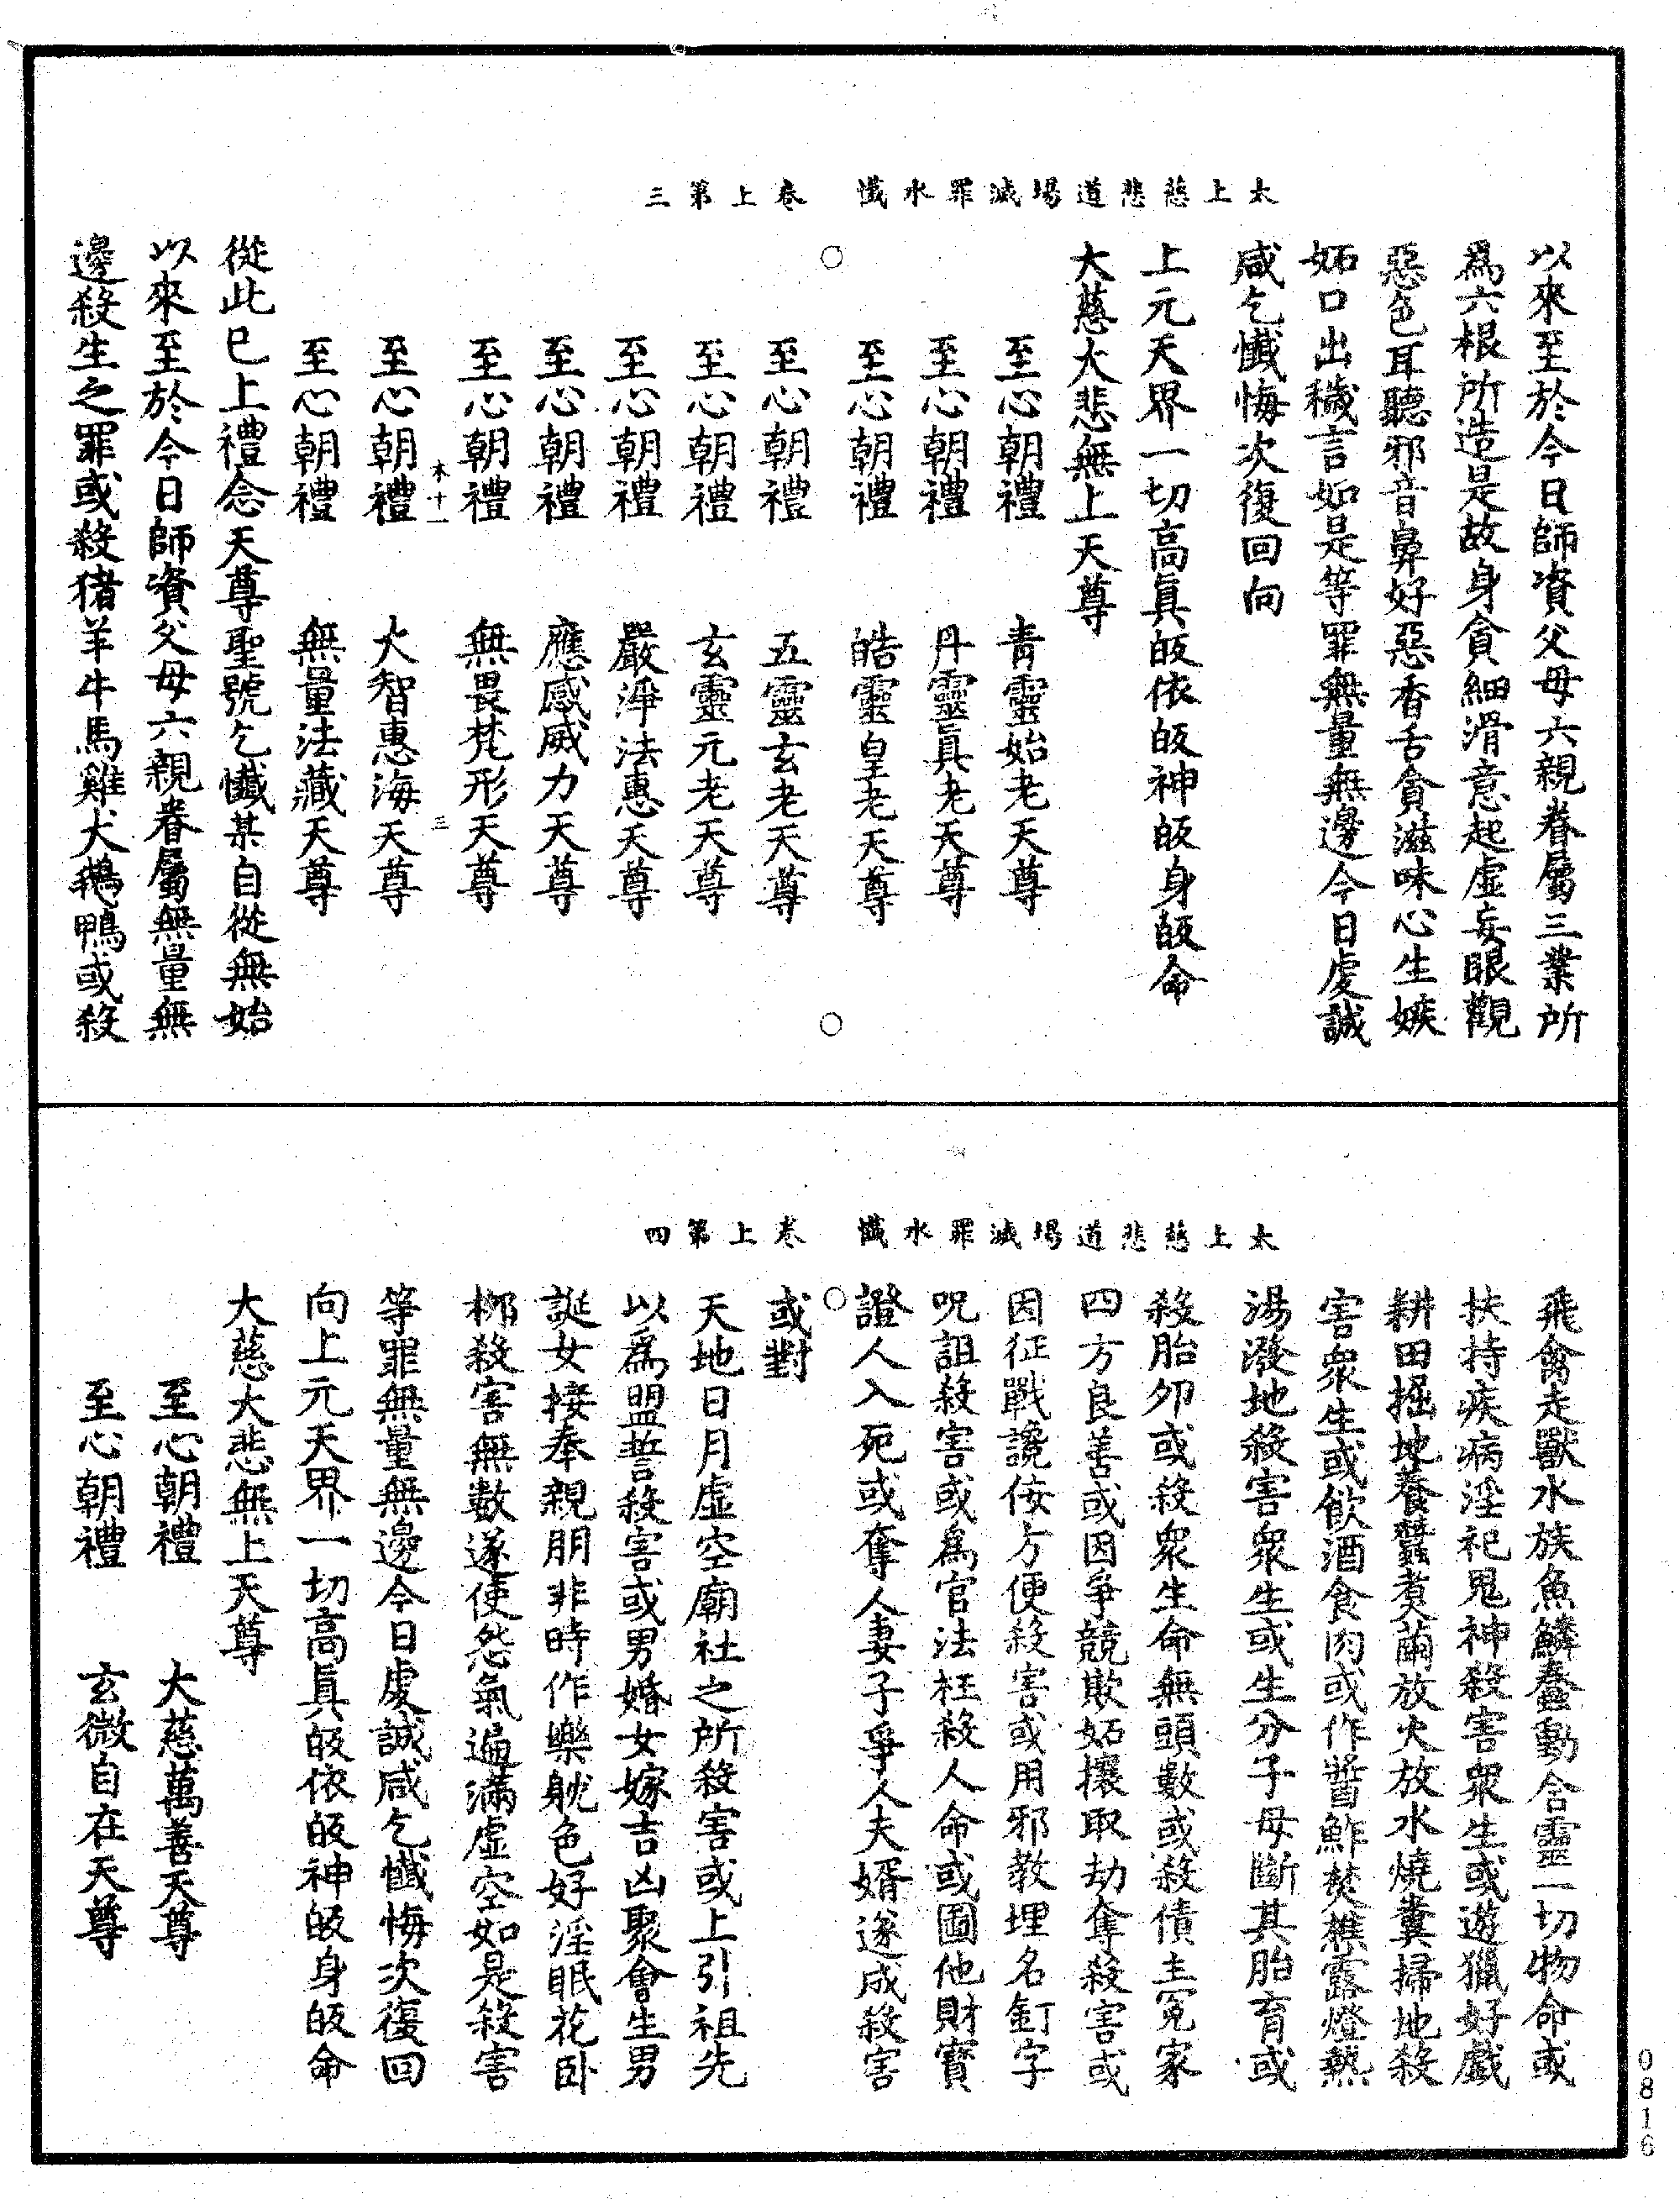 太上慈悲道場滅罪水懺　卷上第三
以來至於今日師資父母六親眷屬三業所
為六根所造是故身貪細滑意起虛妄眼觀
惡色耳聽邪音鼻好惡香舌貪滋味心生嫉
妬口出穢言如是等罪無量無邊今日虔誠
咸乞懺悔次復回向
上元天界一切高眞皈依皈神皈身皈命
大慈大悲無上天尊
至心朝禮　青靈始老天尊
至心朝禮　丹靈眞老天尊
至心朝禮　皓靈皇老天尊
至心朝禮　五靈玄老天尊
至心朝禮　玄靈元老天尊
至心朝禮　嚴淨法惠天尊
至心朝禮　應感威力天尊
至心朝禮　無畏梵形天尊
木十一　三
至心朝禮　大智惠海天尊
至心朝禮　無量法藏天尊
從此已上禮念天尊聖號乞懺某自從無始
以來至於今日師資父母六親眷屬無量無
邊殺生之罪或殺猪羊牛馬雞犬鵝鴨或殺
太上慈悲道場滅罪水懺　卷上第四
飛禽走獸水族魚鱗蠢動含靈一切物命或
扶持疾病淫祀鬼神殺害衆生或遊獵好戲
耕田掘地養蠶煮繭放火放水燒糞掃地殺
害衆生或飲酒食肉或作醬鮓焚樵露燈熱
湯潑地殺害衆生或生分子母斷其胎育或
殺胎夘或殺衆生命無頭數或殺債主冤家
四方良善或因爭競欺妬攘取劫奪殺害或
因征戰讒佞方便殺害或用邪教埋名釘字
呪詛殺害或為官法枉殺人命或圖他財寳
證人入死或奪人妻子爭人夫婿遂成殺害
或對
天地日月虛空廟社之所殺害或上引祖先
以為盟誓殺害或男婚女嫁吉凶聚會生男
誕女接奉親朋非時作樂躭色好淫眠花卧
柳殺害無數遂使怨氣遍滿虛空如是殺害
等罪無量無邊今日虔誠咸乞懺悔次復回
向上元天界一切高眞皈依皈神皈身皈命
大慈大悲無上天尊
至心朝禮　大慈萬善天尊
至心朝禮　玄微自在天尊
0816